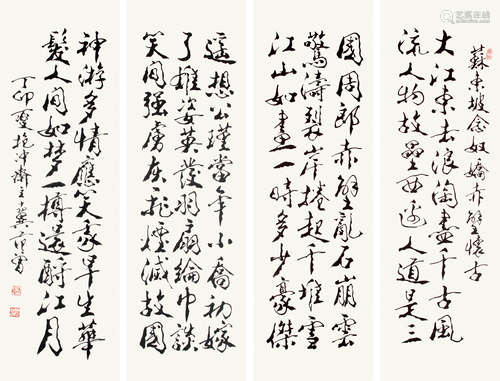 艺典中国
蘇東坡念奴嬌赤壁懷古
大江東去浪淘盡千古風
流人物故壘西邊人道是三
國周郎赤壁亂石崩雲
驚濤裂岸捲起千堆雪
江山如畫一時多少豪傑
遙想公瑾當年小喬初嫁
了雄姿英發羽扇綸巾談
笑間強虜灰飛煙滅故國
神游多情應笑我早生華
髮人間如夢一樽還酹江月
丁卯夏抱沖齋主十翼范曾